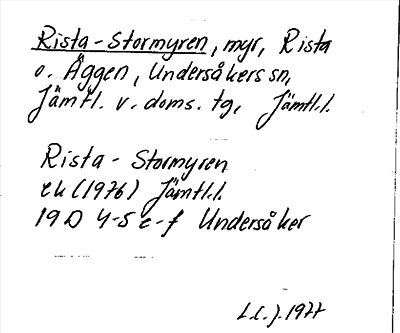 Rista-Stormyren, myr, Rista
o. Äggen, Undersåkers sn,
Jämtl. v. doms. tg, Jämtl.l.
Rista-Stormyren
ek (1976) Jämtl.l.
19D 4-5 e-f Undersåker
L.C.J. 1977